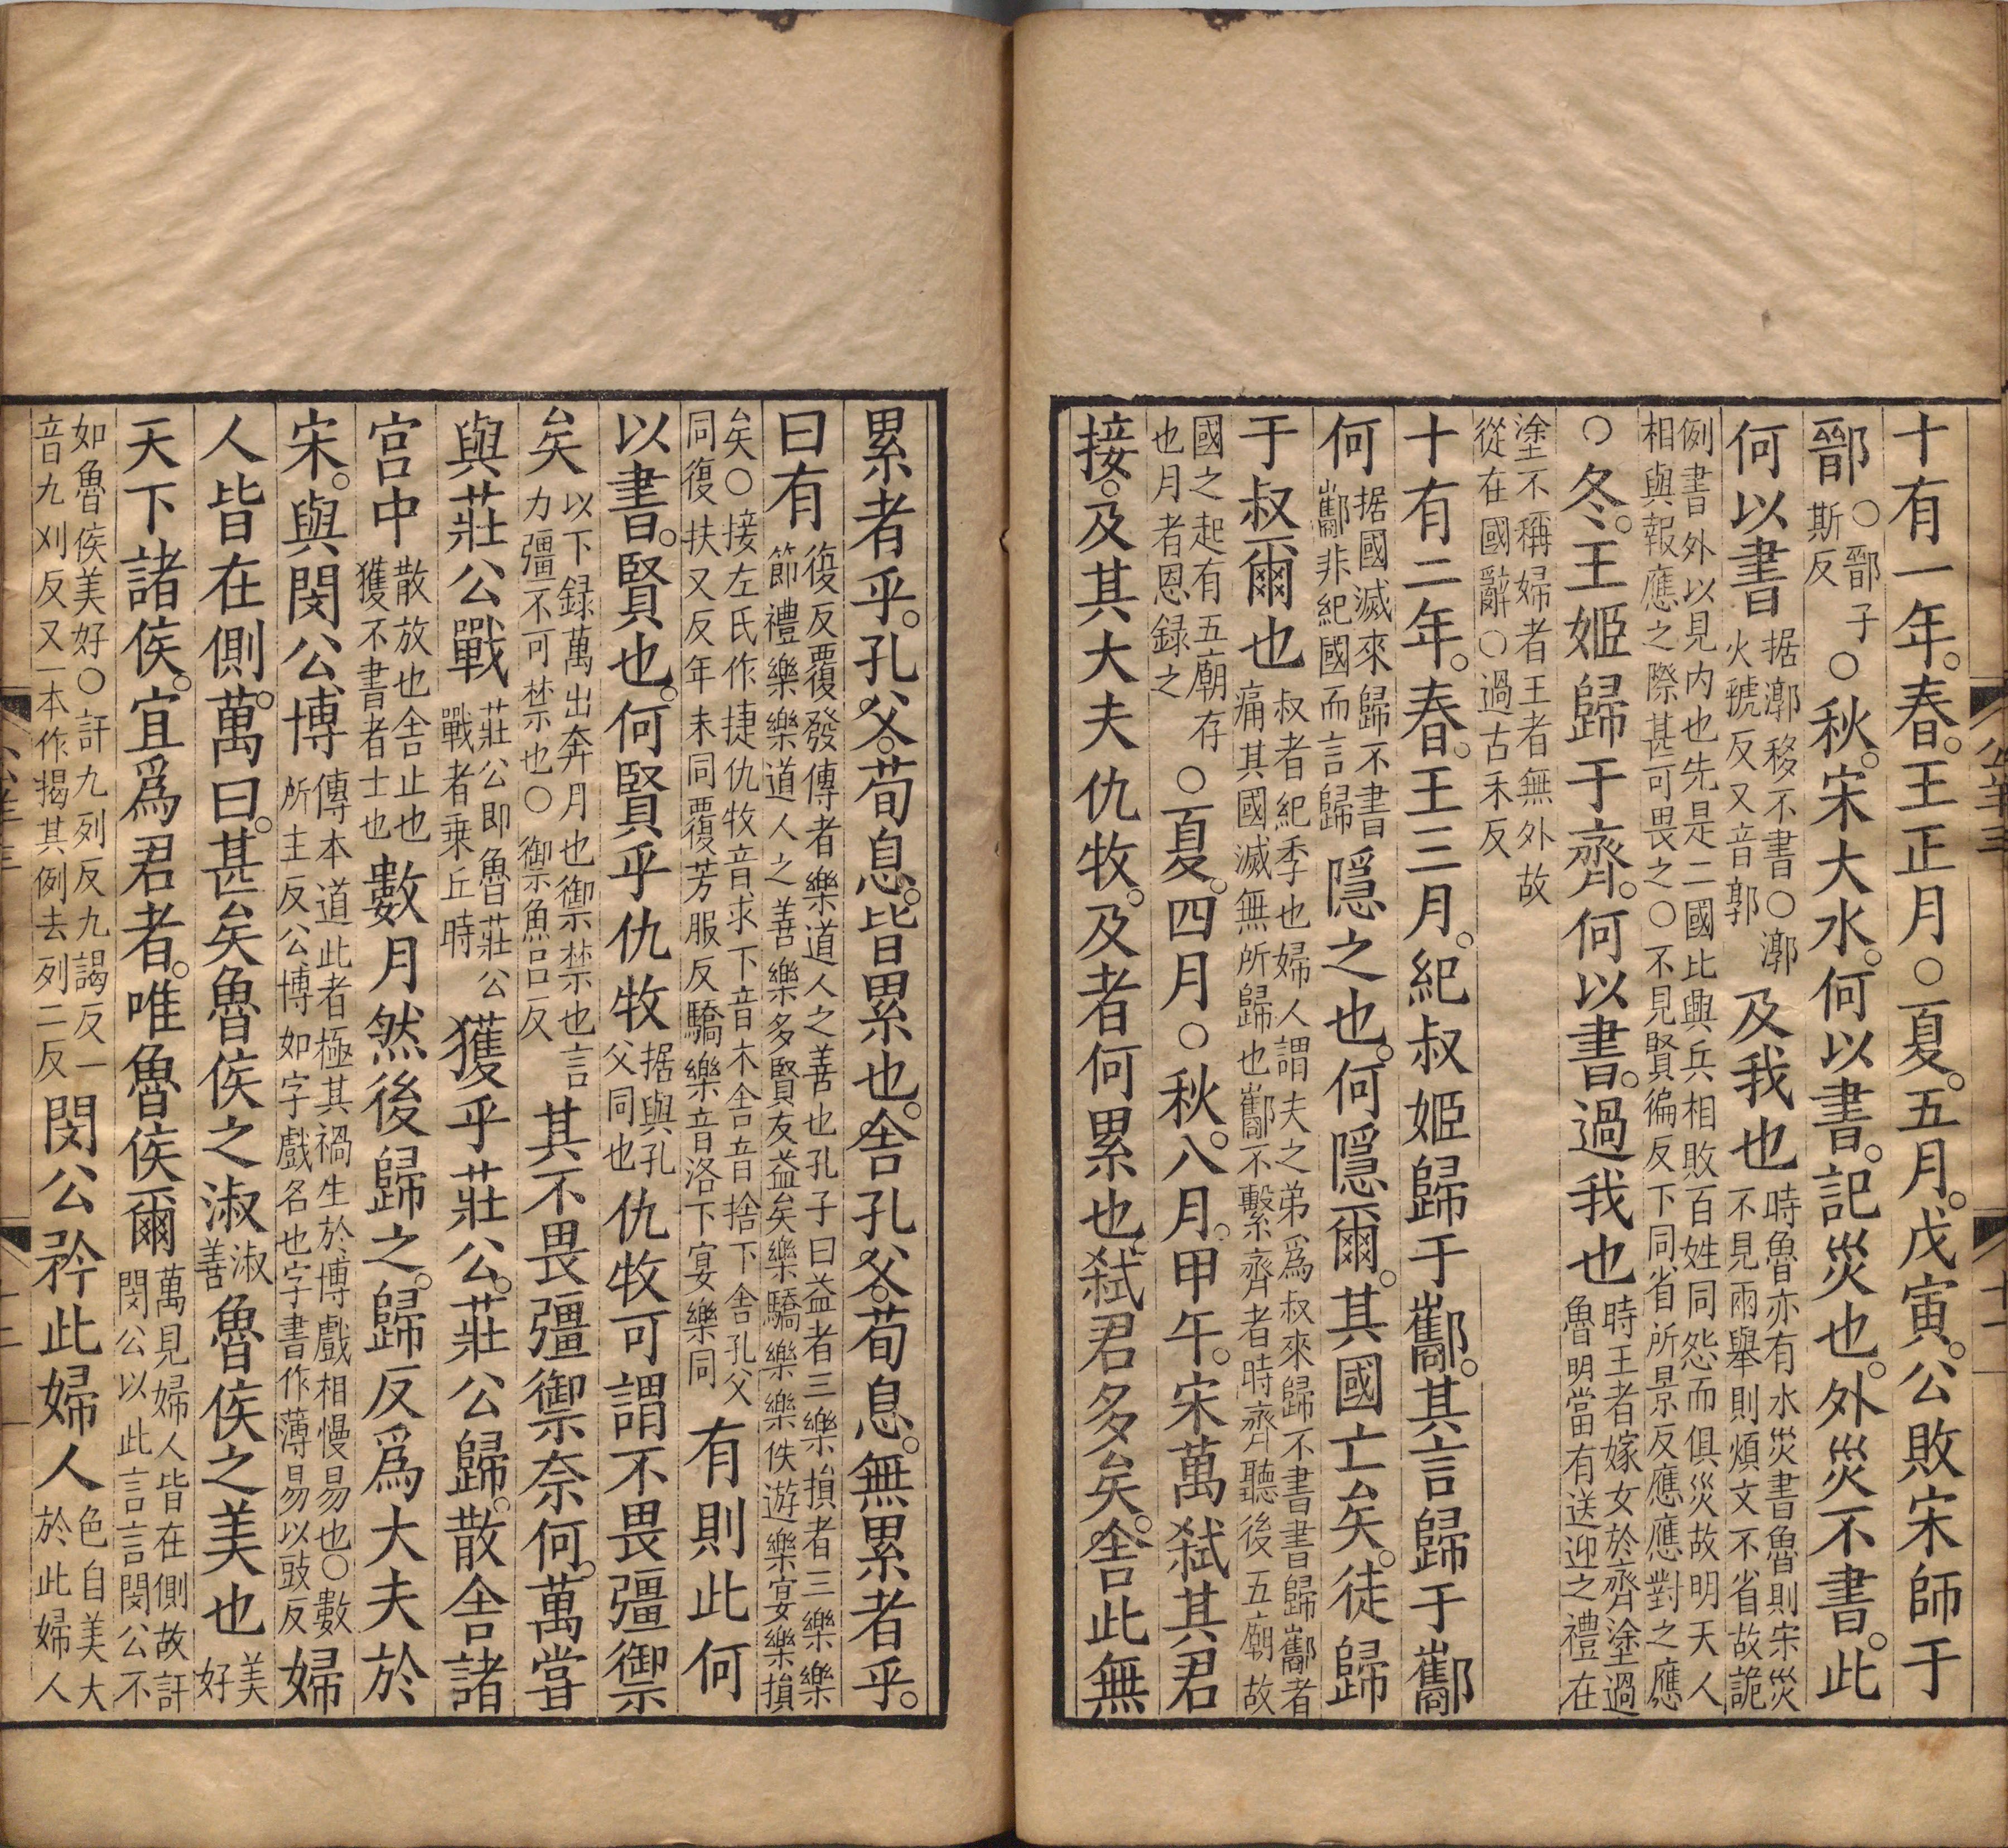 十有一年。春。王正月○夏。五月。戊寅。公敗宋師于
鄑○鄑子斯反○秋。宋大水。何以書。記災也。外災不書。此
何以書据漷移不書○漷火虢反又音郭及我也時魯亦有水災書魯則宋災不見兩舉則煩文不省故詭
例書外以見内也先是二國比興兵相敗百姓同怨而俱災故明天人相與報應之際甚可畏之○不見賢徧反下同省所景反應應對之應
○冬。王姬歸于齊。何以書。過我也時王者嫁女於齊塗過魯明當有送迎之禮在
塗不稱婦者王者無外故從在國辭○過古禾反
十有二年。春。王三月。紀叔姬歸于酅。其言歸于酅
何据國滅來歸不書酅非紀國而言歸隱之也。何隱爾。其國亡矣。徒歸
于叔爾也叔者紀季也婦人謂夫之弟爲叔來歸不書書歸酅者痛其國滅無所歸也酅不繫齊者時齊聽後五廟故
國之起有五廟存也月者恩錄之○夏。四月○秋。八月。甲午。宋萬弑其君
接。及其大夫仇牧。及者何累也弑君多矣。舍此無
累者乎。孔父。荀息。皆累也。舍孔父。荀息。無累者乎。
曰有復反覆發傳者樂道人之善也孔子曰益者三樂損者三樂樂節禮樂樂道人之善樂多賢友益矣樂驕樂樂佚遊樂宴樂損
矣○接左氏作捷仇牧音求下音木舍音捨下舍孔父同復扶又反年末同覆芳服反驕樂音洛下宴樂同有則此何
以書。賢也。何賢乎仇牧据與孔父同也仇牧可謂不畏彊禦
矣以下録萬出奔月也禦禁也言力彊不可禁也○禦魚呂反其不畏彊禦奈何。萬嘗
與莊公戰莊公即魯莊公戰者乗丘時獲乎莊公。莊公歸。散舍諸
宮中散放也舍止也獲不書者士也數月然後歸之。歸反爲大夫於
宋。與閔公博傳本道此者極其禍生於博戲相慢易也○數所主反公博如字戲名也字書作薄易以豉反婦
人皆在側。萬曰。甚矣魯侯之淑淑善魯侯之美也美好
天下諸侯。宜爲君者。唯魯侯爾萬見婦人皆在側故訐閔公以此言言閔公不
如魯侯美好○訐九列反九謁反一音九刈反又一本作揭其例去列二反閔公矜此婦人色自美大於此婦人